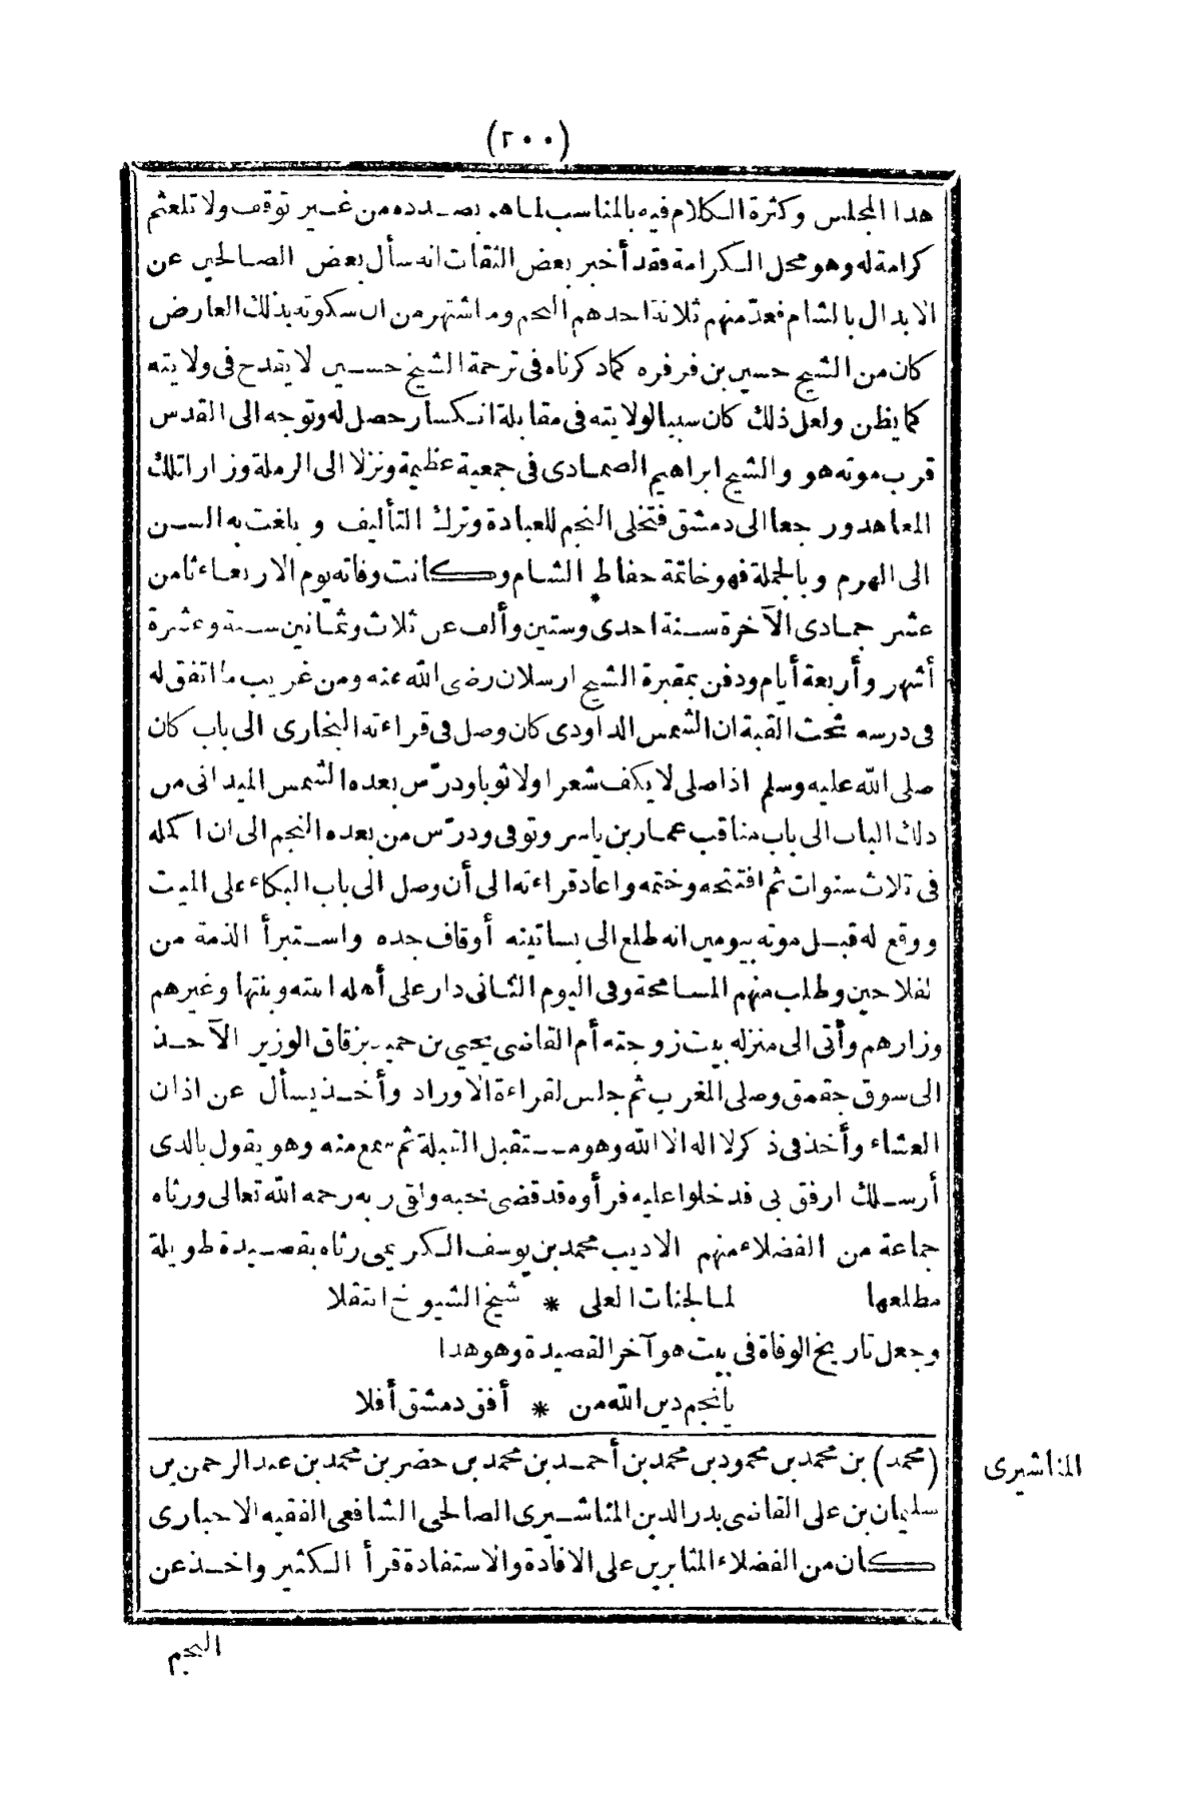 (٢٠٠)
هذا المجلس وكثرة الكلام فيه بالمناسب لما هو بصدده من غير توقف ولا تلعثم
كرامة له وهو محل الكرامة فقد أخبر بعض الثقات انه سأل بعض الصالحين عن
الابدال بالشام فعد منهم ثلاثة احدهم النجم وما اشتهر من ان سكوته بذلك العارض
كان من الشيخ حسين بن فرفره كما ذكرناه فى ترجمة الشيخ حسين لا يقدح فى ولايته
كما يظن ولعل ذلك كان سببا لولايته فى مقابلة انكسار حصل له وتوجه الى القدس
قرب موته هو والشيخ ابراهيم الصمادى فى جمعية عظيمة ونزلا الى الرملة وزارا تلك
المعاهد ورجعا الى دمشق فتخلى النجم للعبادة وترك التأليف وبلغت به السن
الى الهرم وبالجملة فهو خاتمة حفاظ الشام وكانت وفاته يوم الاربعاء ثامن
عشر جمادى الآخرة سنة احدى وستين وألف عن ثلاث وثمانين سنة وعشرة
أشهر وأربعة أيام ودفن بمقبرة الشيخ ارسلان رضى الله عنه ومن غريب ما اتفق له
فى درسه تحت القبة ان الشمس الداودى كان وصل فى قراءته البخارى الى باب كان
صلى الله عليه وسلم اذا صلى لا يكف شعرا ولا ثوبا ودرّس بعده الشمس الميدانى من
ذلك الباب الى باب مناقب عمار بن ياسر وتوفى ودرّس من بعده النجم الى ان اكمله
فى ثلاث سنوات ثم افتتحه وختمه واعاد قراءته الى أن وصل الى باب البكاء على الميت
ووقع له قبل موته بيومين انه طلع الى بساتينه أوقاف جده واستبرأ الذمة من
لفلاحين وطلب منهم المسامحة وفى اليوم الثانى دار على أهله ابنته وبنتها وغيرهم
وزارهم وأتى الى منزله بيت زوجته أم القاضى يحيى بن حميد بزقاق الوزير الآخذ
الى سوق جقمق وصلى المغرب ثم جلس لقراءة الاوراد وأخذ يسأل عن اذان
العشاء وأخذ فى ذكر لا اله الا الله وهو مستقبل القبلة ثم سمع منه وهو يقول بالذى
أرسلك ارفق بى فدخلوا عليه فرأوه قد قضى نحبه ولقى ربه رحمه الله تعالى ورثاه
جماعة من الفضلاء منهم الاديب محمد بن يوسف الكريمى رثاه بقصيدة طويلة
مطلعها لما لجنات العلى * شيخ الشيوخ انتقلا
وجعل تاريخ الوفاة فى بيت هو آخر القصيدة وهو هذا
يا نجم دين الله من * أفق دمشق أفلا
(محمد) بن محمد بن محمود بن محمد بن أحمد بن محمد بن خضر بن محمد بن عبد الرحمن بن
سليمان بن على القاضى بدر الدين المناشيرى الصالحى الشافعى الفقيه الاخبارى
كان من الفضلاء المثابرين على الافادة والاستفادة قرأ الكثير واخذ عن
المناشيرى
النجم